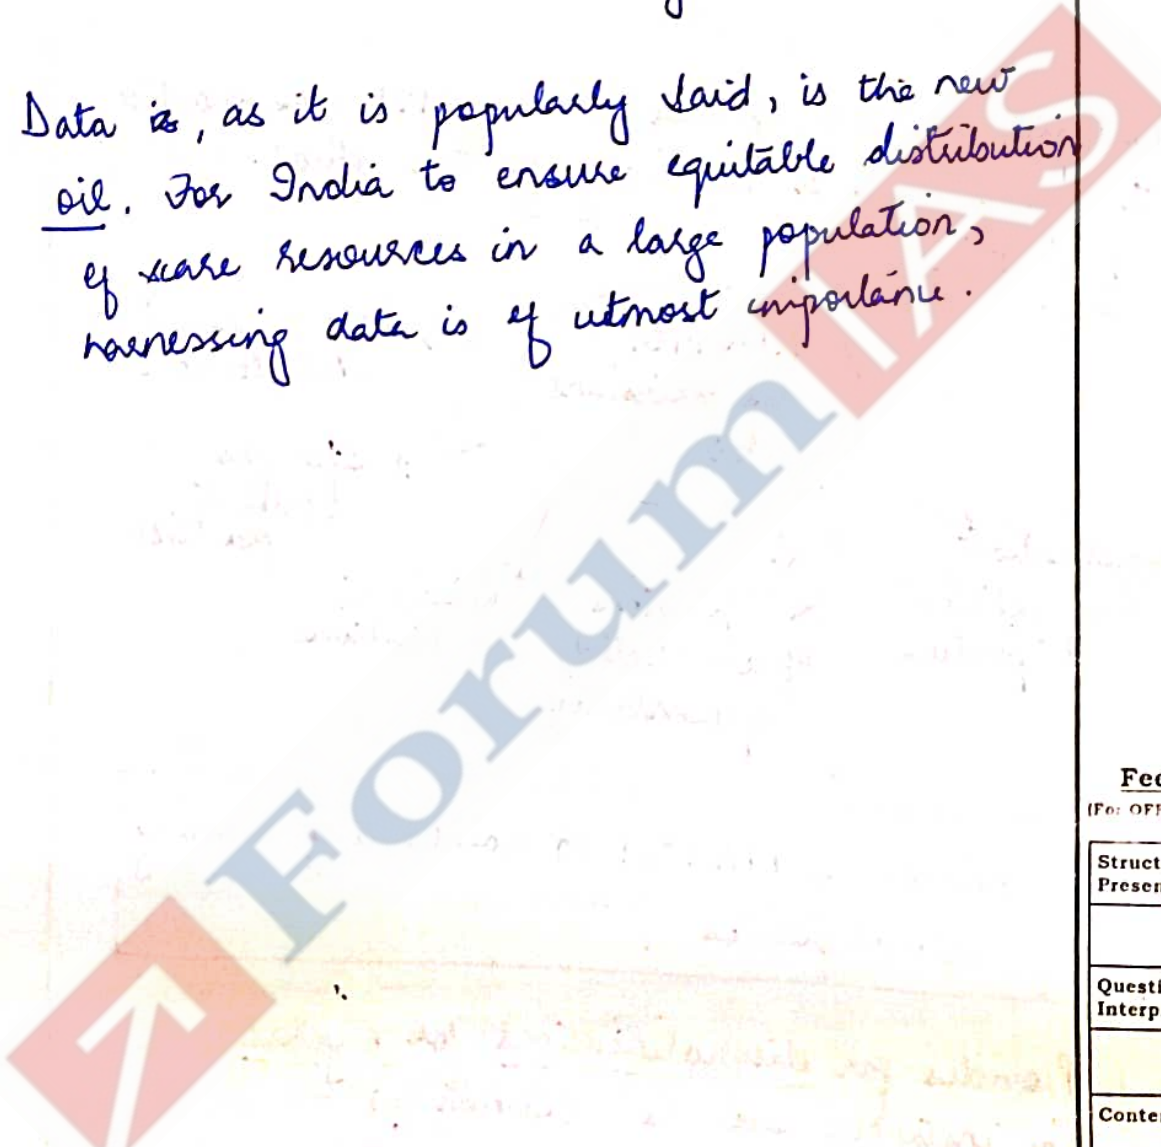 Data is, as it is popularly said, is the new
oil. For India to ensure equitable distribution
of scare resources in a large population,
harnessing data is of utmost importance.
Forum IAS
Fee
(For OFF
Struct
Presen
Questi
Interp
Conte